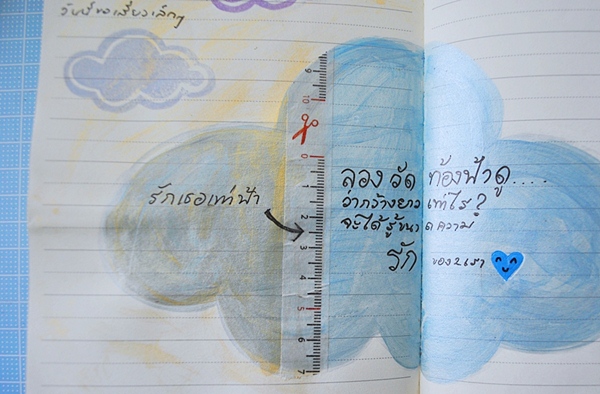 วันนี้ขอเสี่ยวเล็กๆ
รักเธอเท่าฟ้า
ลอง วัด ท้องฟ้าดู....
ว่ากว้างยาวเท่าไร?
จะได้รู้ขนาดความ
รัก ของ2เรา
9
10
0
1
2
3
4
5
6
7